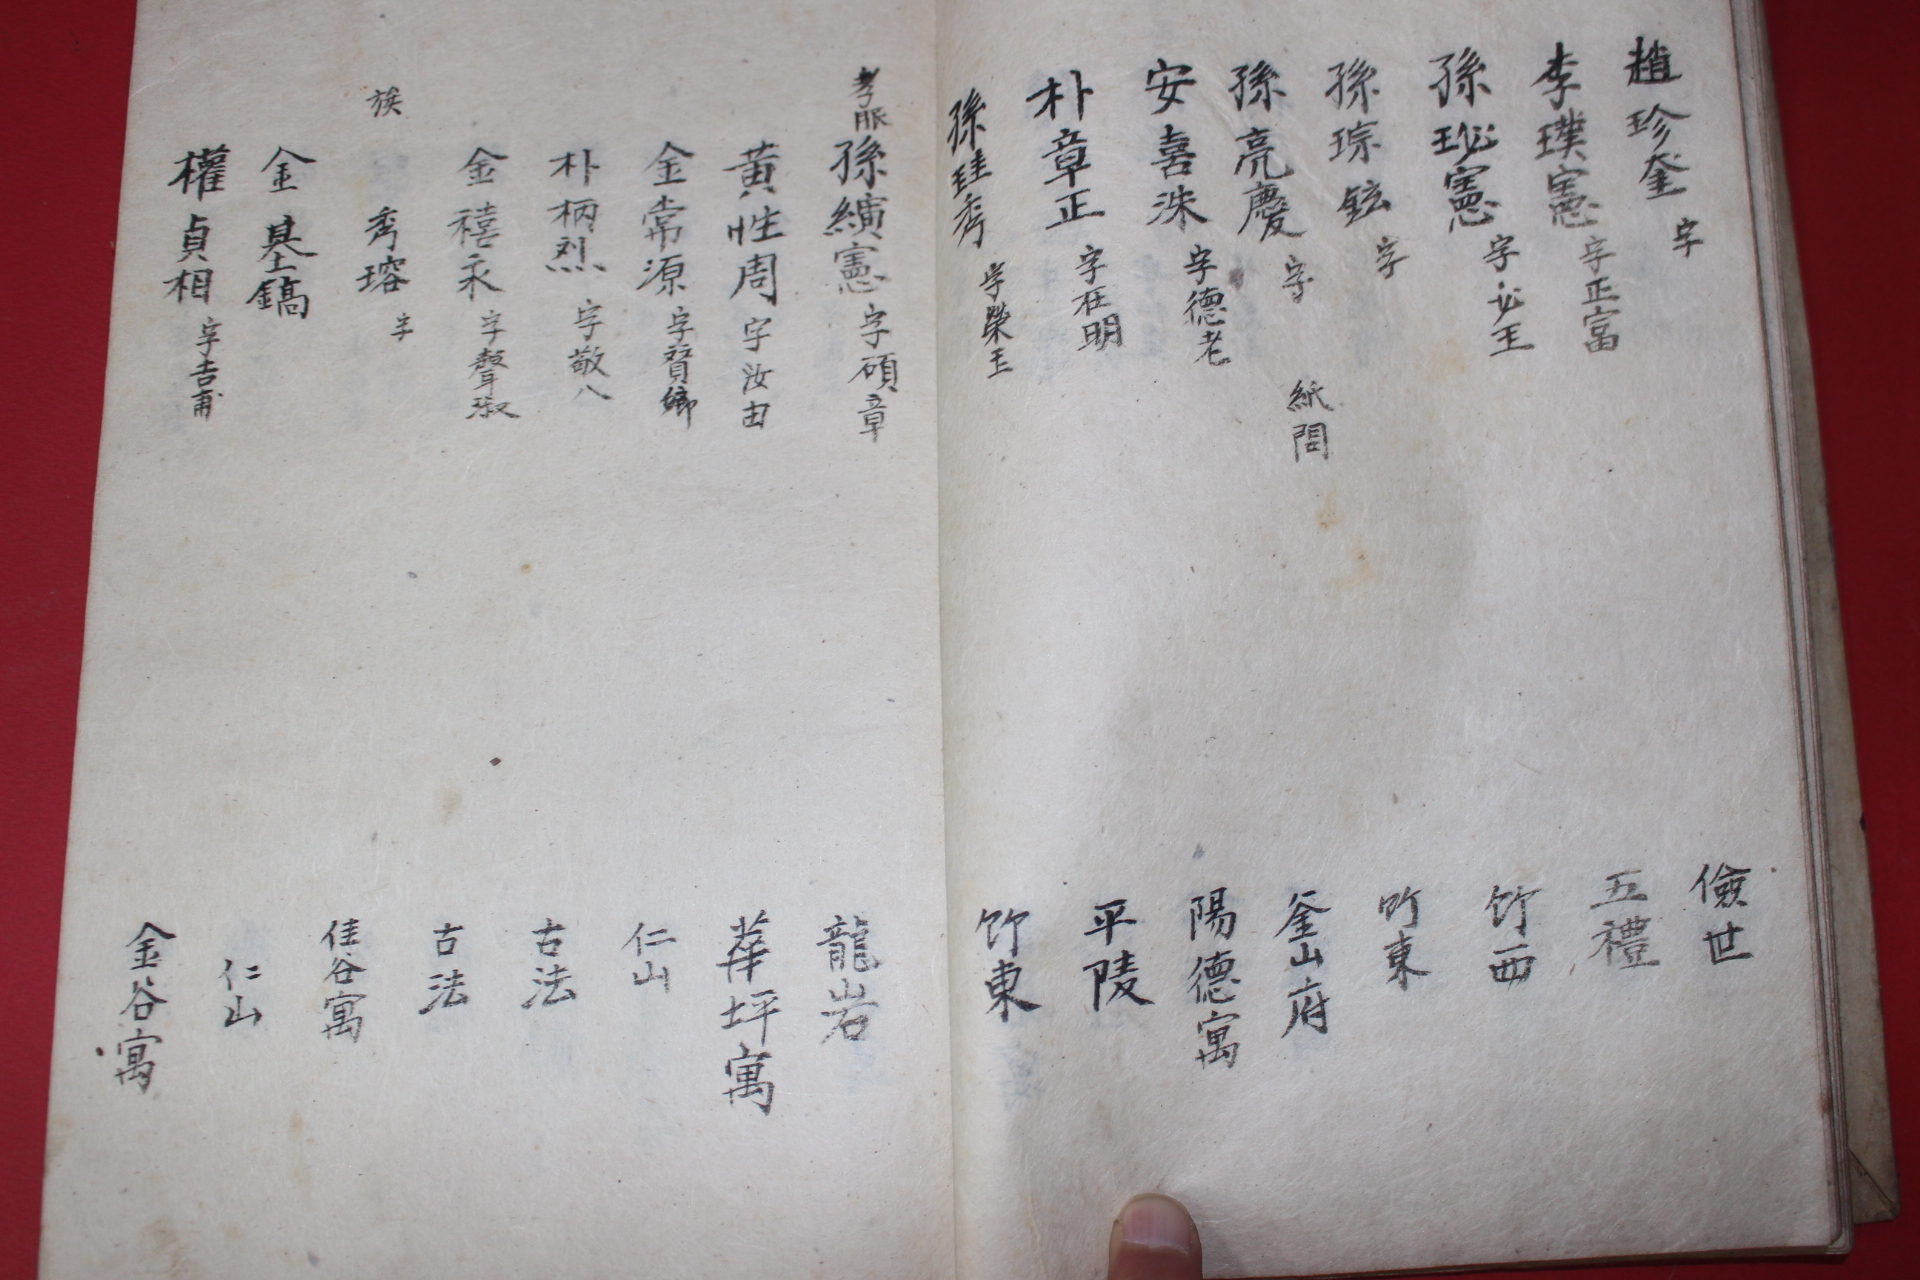 趙珍奎 字 儉世
李璞憲 字正富 五禮
孫珌憲 字必玉 竹西
孫琮鉉 字 竹東
孫亮慶 字 紙問 釜山府
安喜洙 字德老 陽德寓
朴章正 字在明 平陵
孫珪秀 字榮玉 竹東
孝服 孫纘憲 字碩章 龍岩
黃性周 字汝由 華坪寓
金常源 字賢卿 仁山
朴柄烈 字敬八 古法
金禧永 字聲淑 古法
族 秀瑢 字 佳谷寓
金基鎬 仁山
權貞相 字吉甫 金谷寓